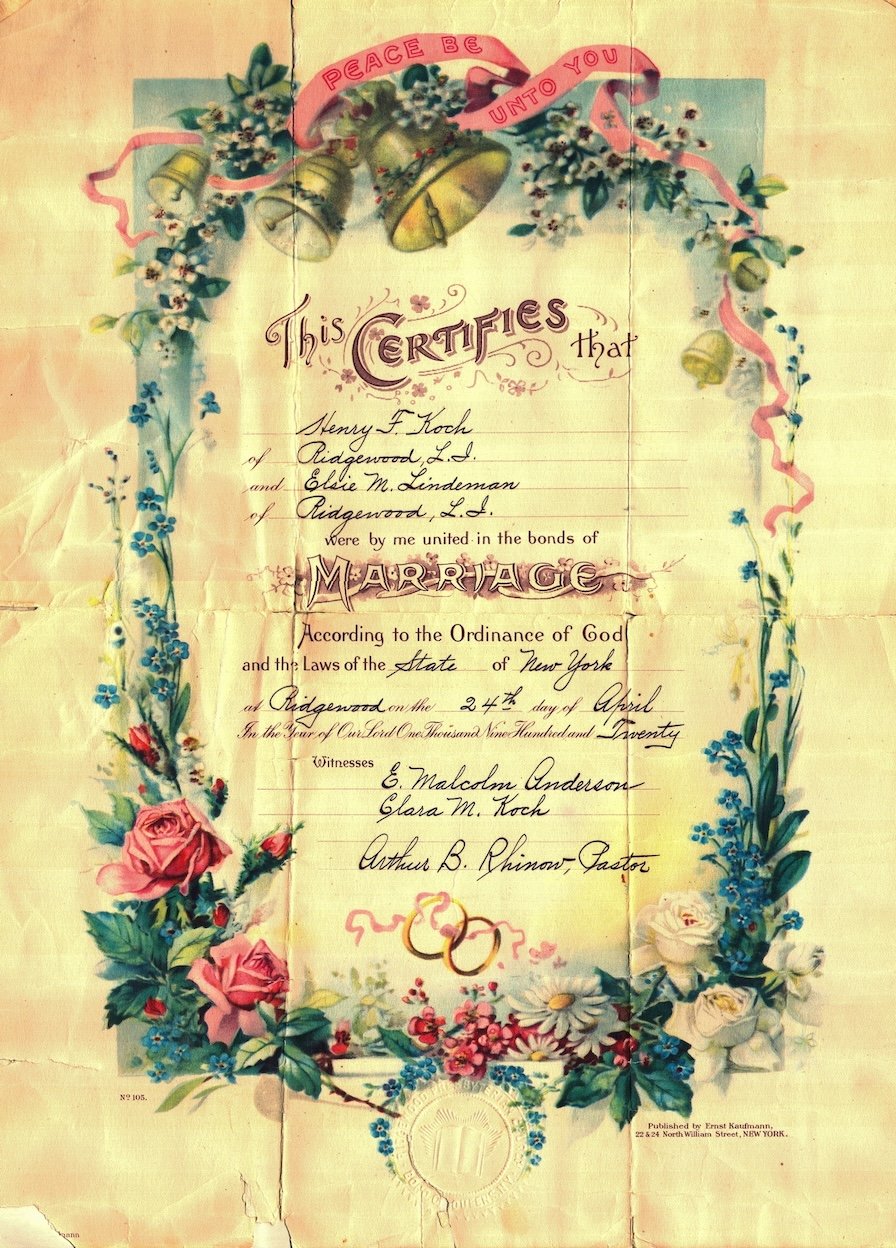 PEACE BE
UNTO YOU
This CERTIFIES that
Henry F. Koch
of Ridgewood, L.I.
and Elsie M. Lindeman
of Ridgewood, L.I.
were by me united in the bonds of
MARRIAGE
According to the Ordinance of God
and the Laws of the State of New York
at Ridgewood on the 24th day of April
In the Year of Our Lord One Thousand Nine Hundred and Twenty
Witnesses
E. Malcolm Anderson
Clara M. Koch
Arthur B. Rhinow, Pastor
No 105.
Published by Ernst Kaufmann,
22 & 24 North William Street, NEW YORK.